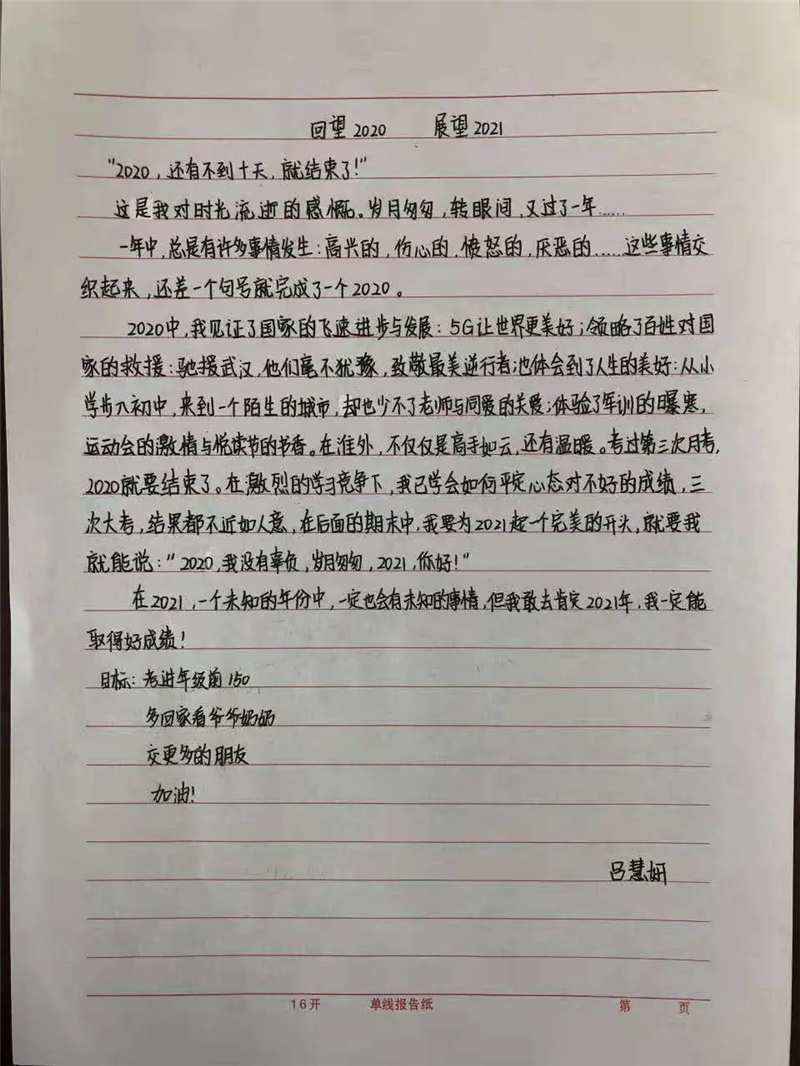 回望2020 展望2021
"2020，还有不到十天，就结束了！"
这是我对时光流逝的感慨。岁月匆匆，转眼间，又过了一年……
一年中，总是有许多事情发生：高兴的，伤心的，愤怒的，厌恶的……这些事情交
织起来，还差一个句号就完成了一个2020。
2020中，我见证了国家的飞速进步与发展：5G让世界更美好；领略了百姓对国
家的救援：驰援武汉，他们毫不犹豫，致敬最美逆行者；也体会到了人生的美好：从小
学步入初中，来到一个陌生的城市，却也少不了老师与同爱的关爱；体验了军训的曝寒，
运动会的激情与悦读节的书香。在淮外，不仅仅是高手如云，还有温暖。考过第三次月考，
2020就要结束了。在激烈的学习竞争下，我已学会如何平定心态对不好的成绩，三
次大考，结果都不近如人意，在后面的期末中，我要为2021起一个完美的开头，就要我
就能说："2020，我没有辜负，岁月匆匆，2021，你好！"
在2021，一个未知的年份中，一定也会有未知的事情，但我敢去肯定2021年，我一定能
取得好成绩！
目标：考进年级前150
多回家看爷爷奶奶
交更多的朋友
加油！
吕慧妍
16开 单线报告纸 第 页